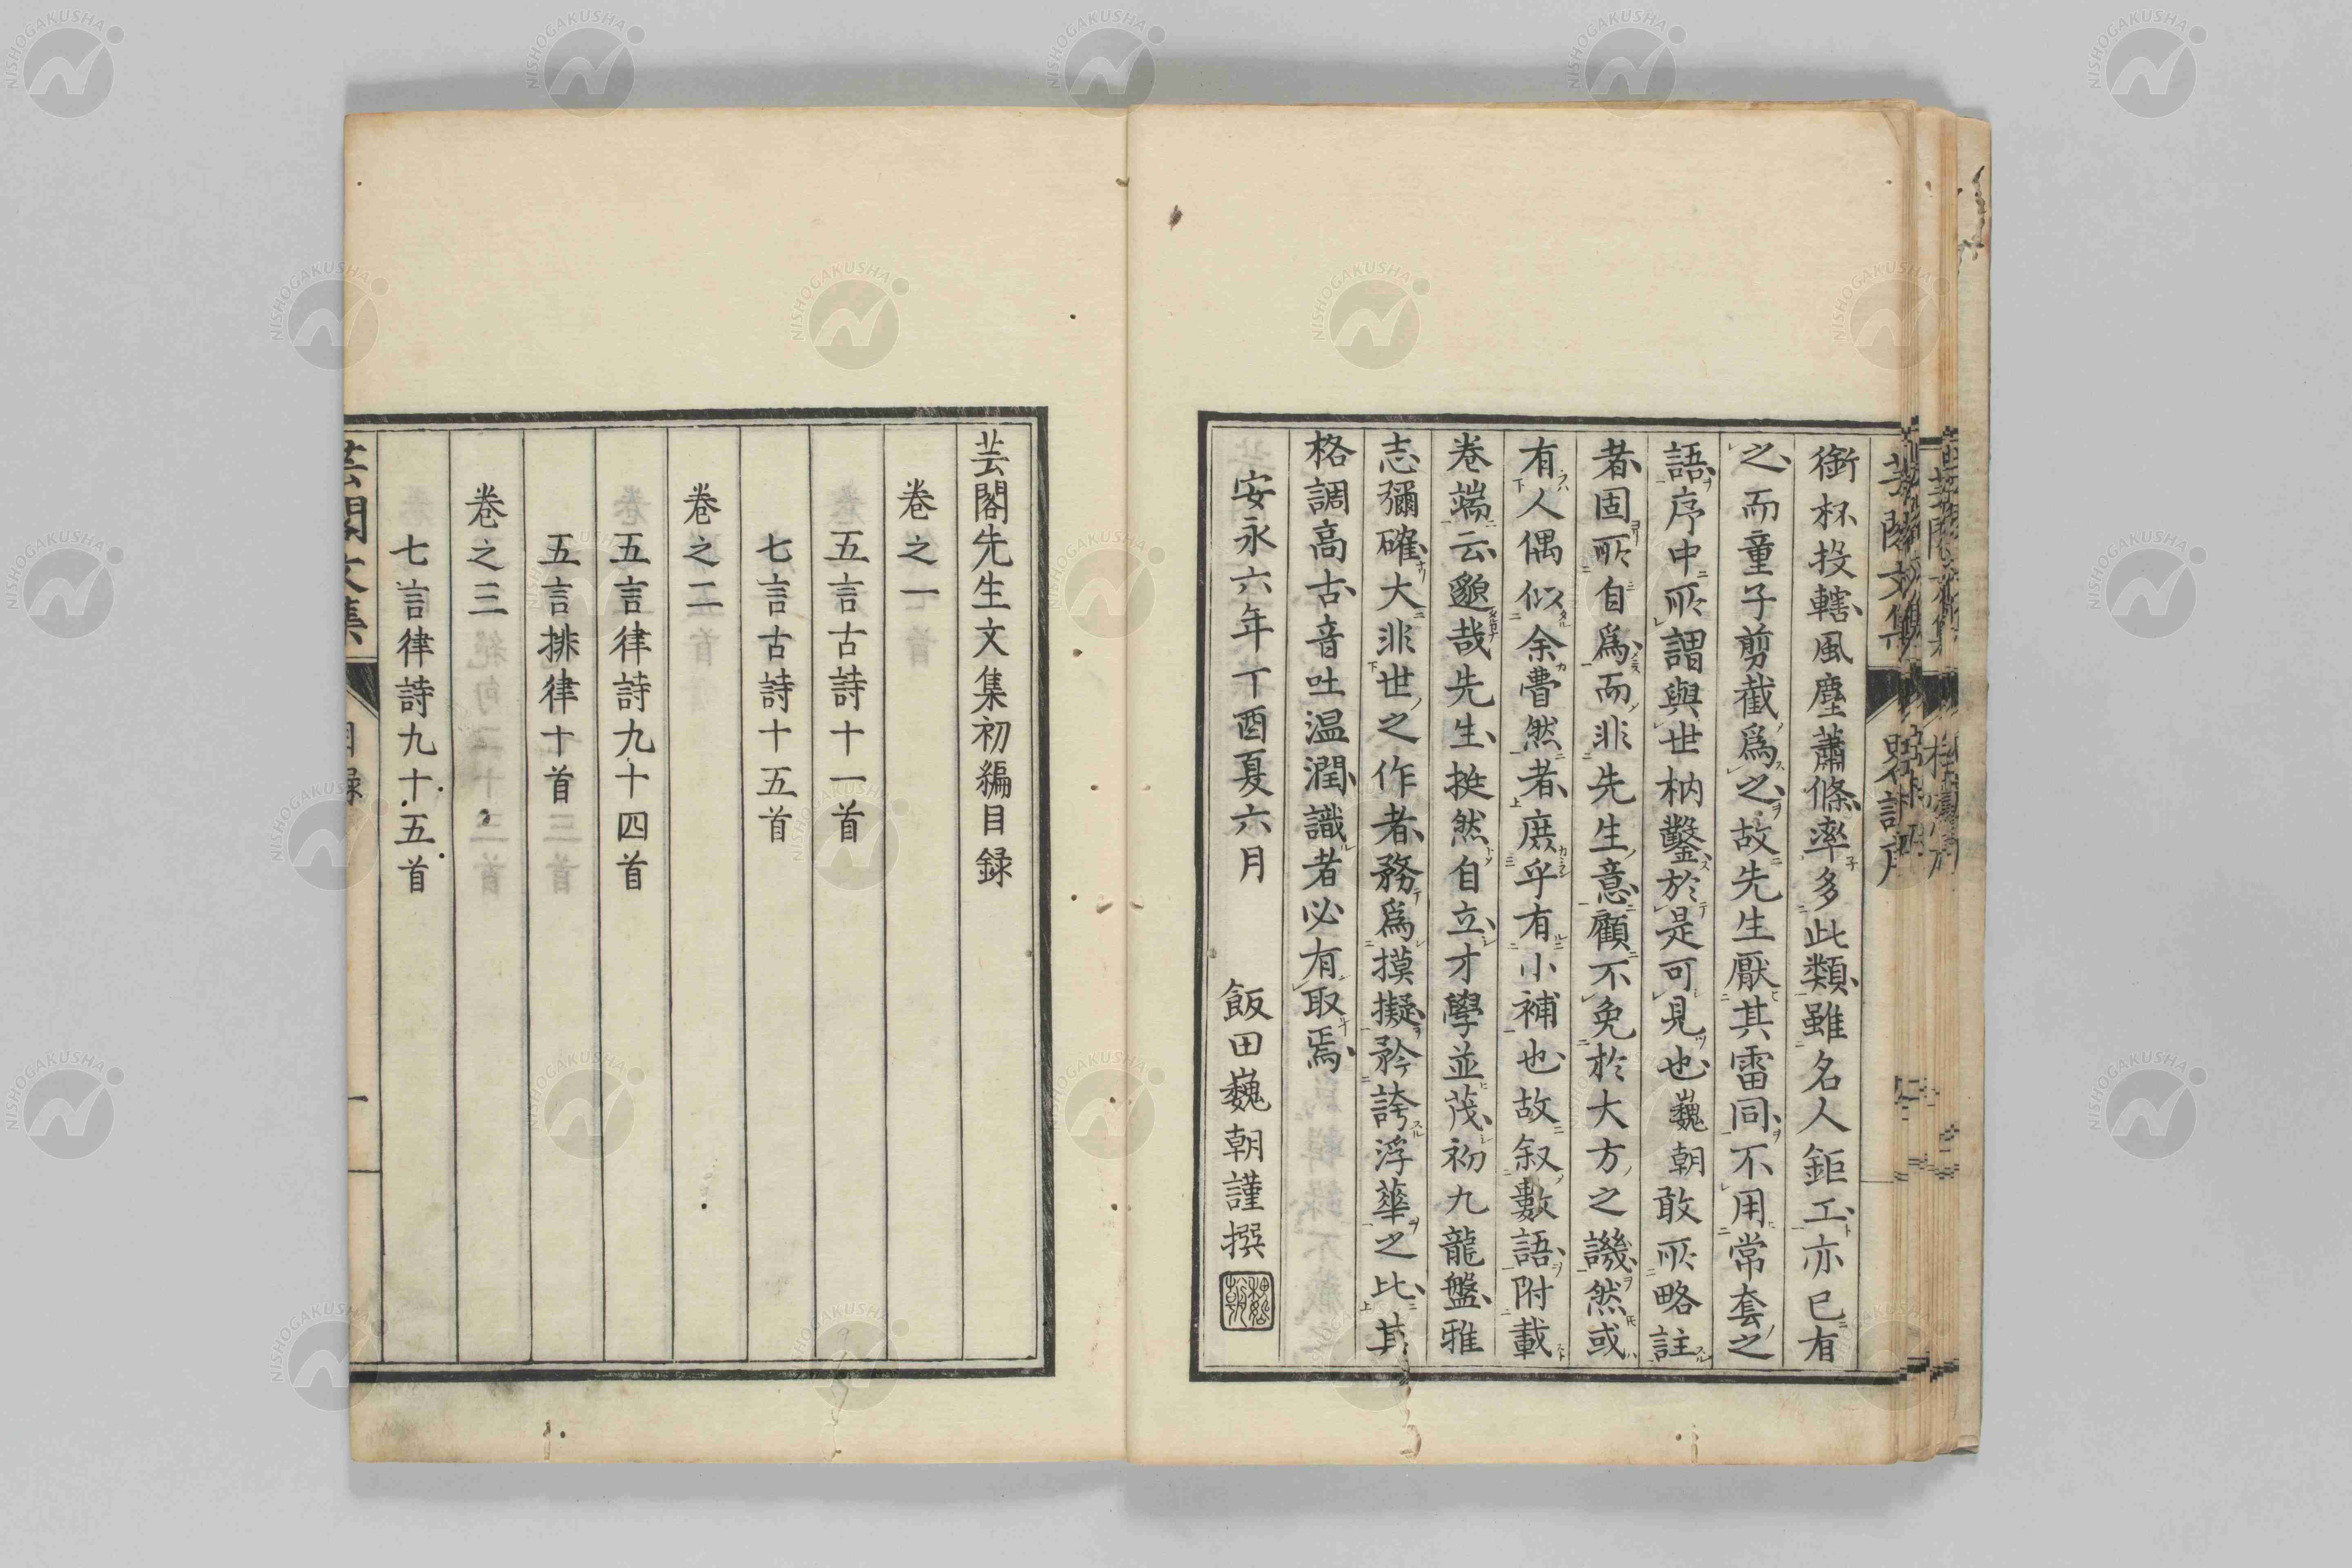 銜杯投轄風塵蕭條率多此類雖名人鉅工亦已有
之而童子剪截爲之故先生厭其雷同不用常套之
語序中所謂與世枘鑿於是可見也巍朝敢所略註
者固所自爲而非先生意顧不免於大方之譏然或
有人偶似余曹然者庶乎有小補也故叙數語附載
卷端云邈哉先生挺然自立才學並茂初九龍盤雅
志彌確大非世之作者務爲摸擬矜誇浮華之比其
格調高古音吐温潤識者必有取焉
安永六年丁酉夏六月 飯田巍朝謹撰
芸閣先生文集初編目録
卷之一
五言古詩十一首
七言古詩十五首
卷之二
五言律詩九十四首
五言排律十首
卷之三
七言律詩九十五首
芸閣文集 目録 一
NISHOGAKUSHA